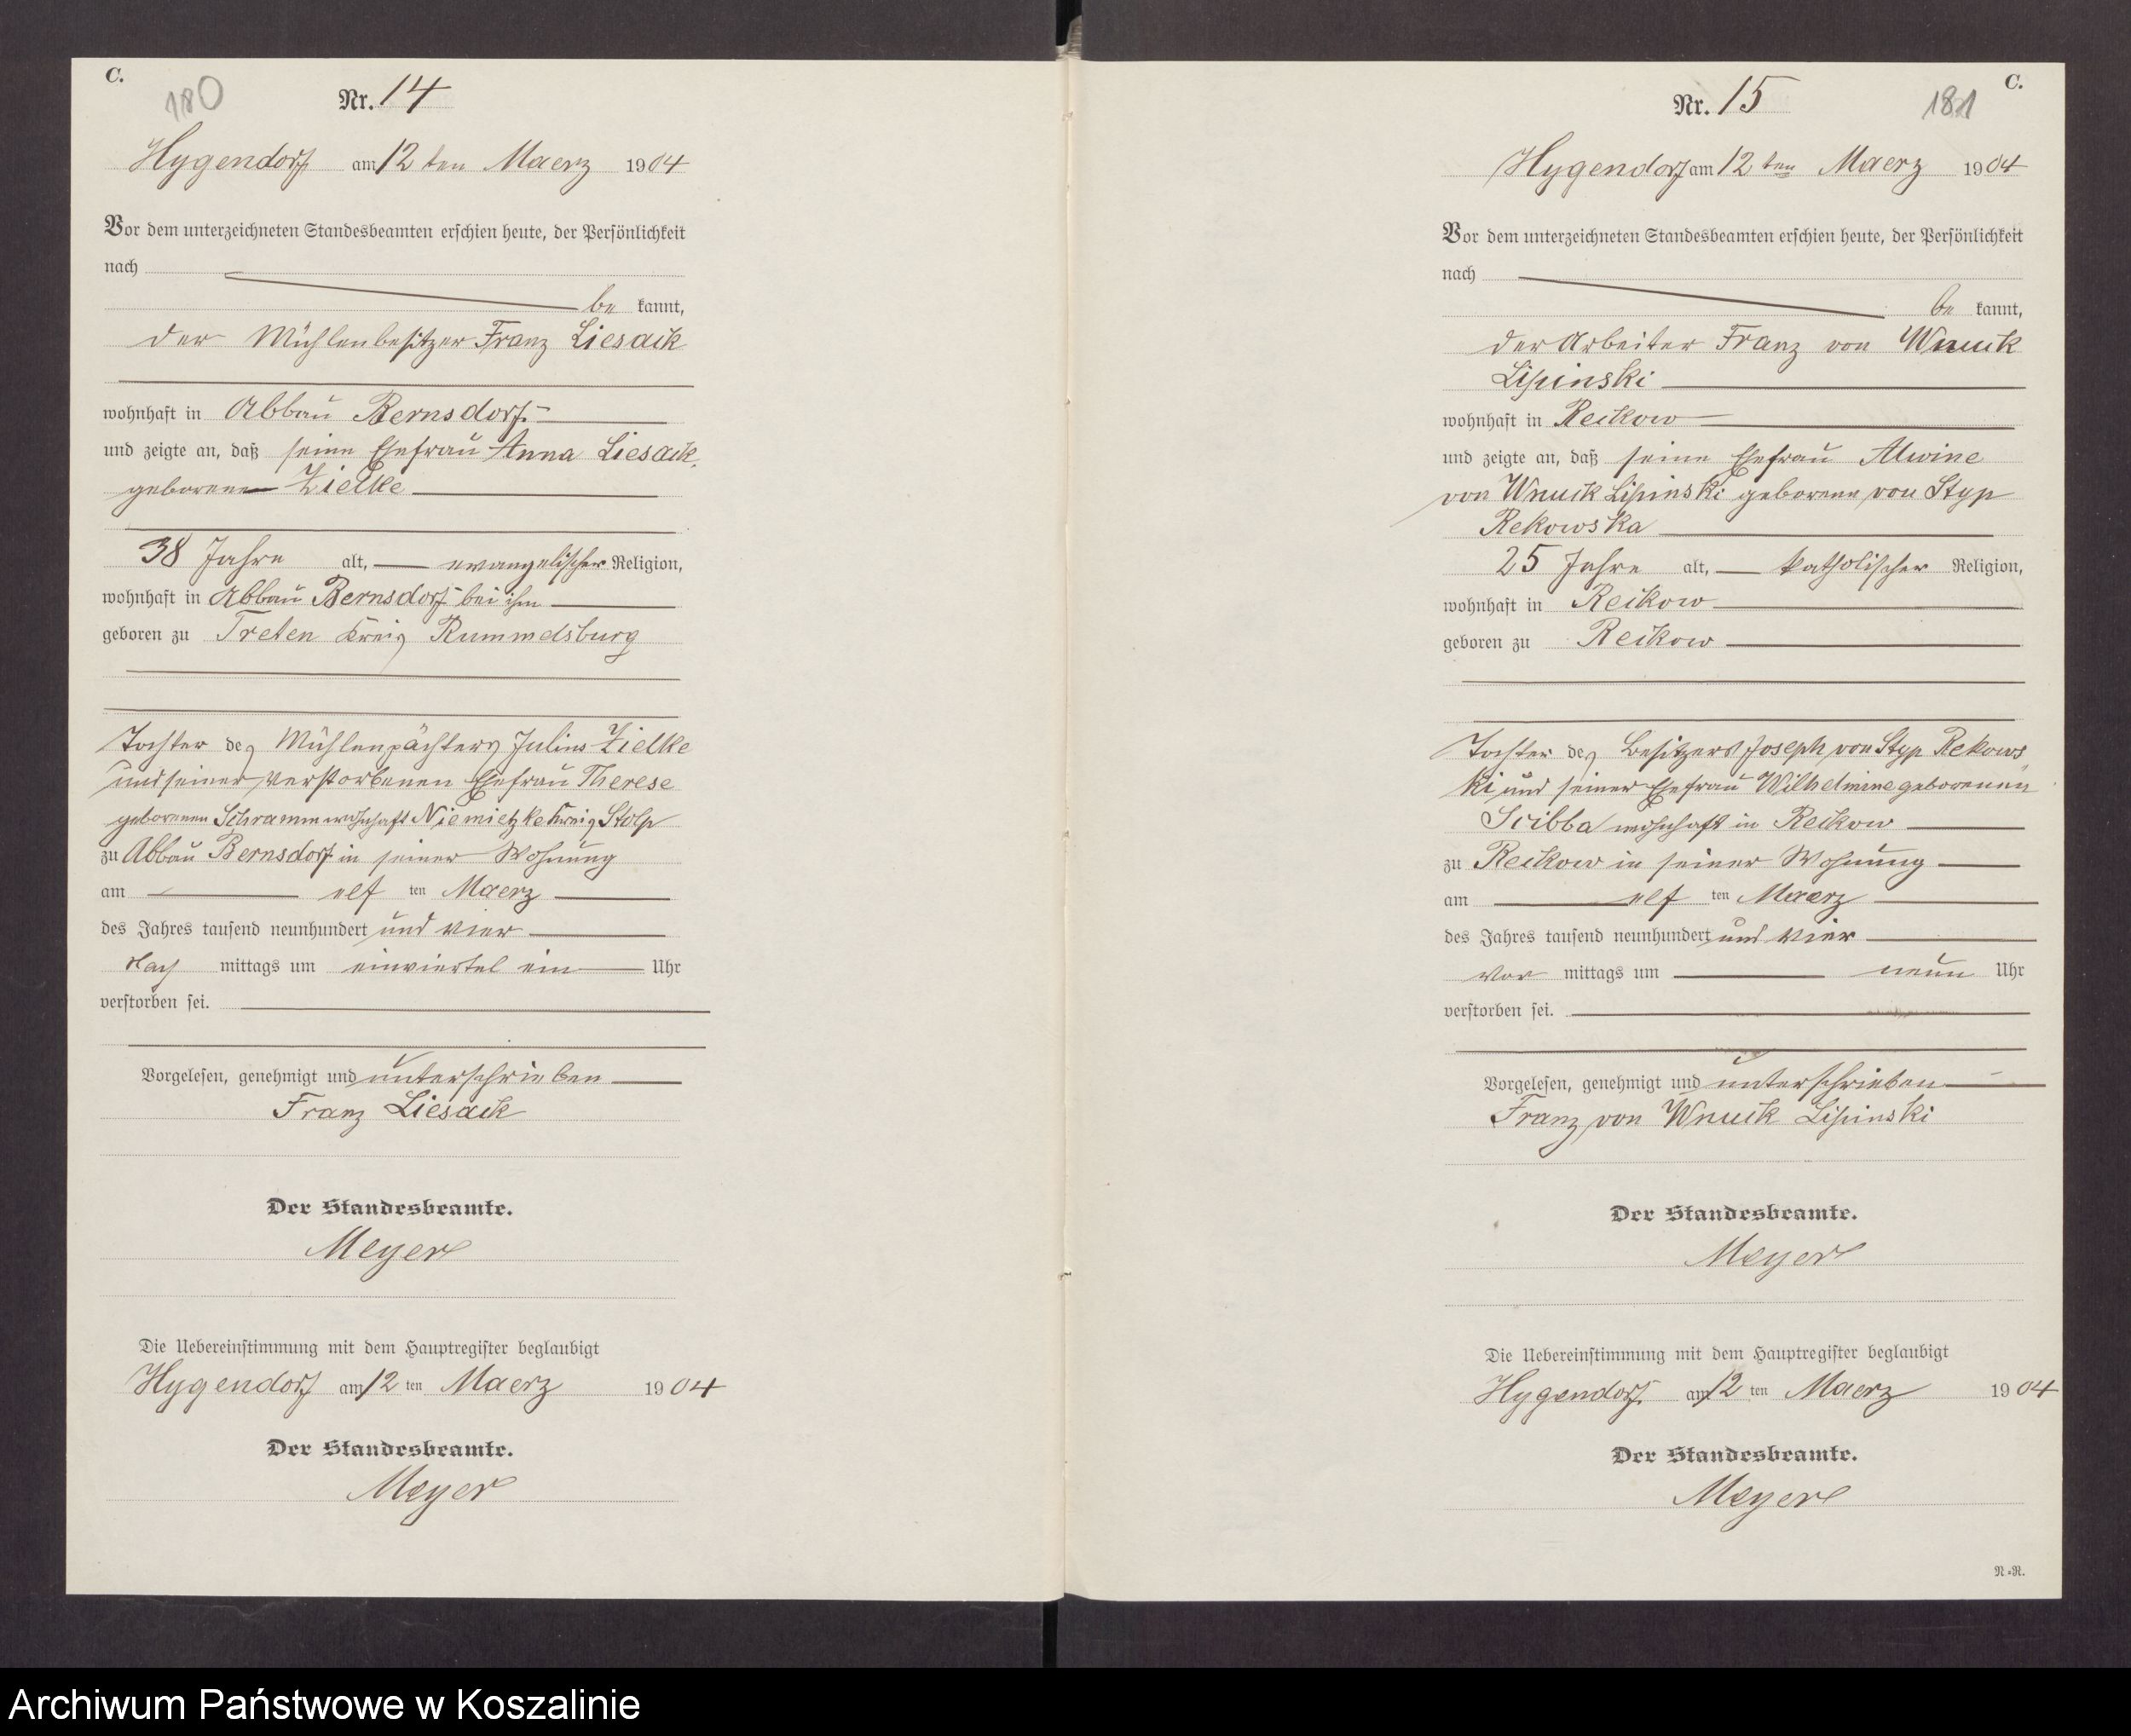 C.
180
Nr. 14
Hygendorf am 12 ten Maerz 1904
Vor dem unterzeichneten Standesbeamten erschien heute, der Persönlichkeit
nach
be kannt,
der Mühlenbesitzer Franz Liesack
wohnhaft in Abbau Bernsdorf
und zeigte an, daß seine Ehefrau Anna Liesack,
geborene Zielke
38 Jahre alt, evangelischer Religion,
wohnhaft in Abbau Bernsdorf bei ihm
geboren zu Treten Kreis Rummelsburg
Tochter des Mühlenpächters Julius Zielke
und seiner verstorbenen Ehefrau Therese
geborenen Schramm wohnhaft Niemietzke Kreis Stolp
zu Abbau Bernsdorf in seiner Wohnung
am elf ten Maerz
des Jahres tausend neunhundert und vier
Nach mittags um einviertel ein Uhr
verstorben sei.
Vorgelesen, genehmigt und unterschrieben
Franz Liesack
Der Standesbeamte.
Meyer
Die Uebereinstimmung mit dem Hauptregister beglaubigt
Hygendorf am 12 ten Maerz 1904
Der Standesbeamte.
Meyer
C.
181
Nr. 15
Hygendorf am 12 ten Maerz 1904
Vor dem unterzeichneten Standesbeamten erschien heute, der Persönlichkeit
nach
be kannt,
der Arbeiter Franz von Wnuck
Lipinski
wohnhaft in Reckow
und zeigte an, daß seine Ehefrau Alwine
von Wnuck Lipinski geborene von Styp
Rekowska
25 Jahre alt, katholischer Religion,
wohnhaft in Reckow
geboren zu Reckow
Tochter des Besitzers Joseph von Styp Rekows
ki und seiner Ehefrau Wilhelmine geborenen
Scibba wohnhaft in Reckow
zu Reckow in seiner Wohnung
am elf ten Maerz
des Jahres tausend neunhundert und vier
Vor mittags um neun Uhr
verstorben sei.
Vorgelesen, genehmigt und unterschrieben
Franz von Wnuck Lipinski
Der Standesbeamte.
Meyer
Die Uebereinstimmung mit dem Hauptregister beglaubigt
Hygendorf am 12 ten Maerz 1904
Der Standesbeamte.
Meyer
N=R.
Archiwum Państwowe w Koszalinie